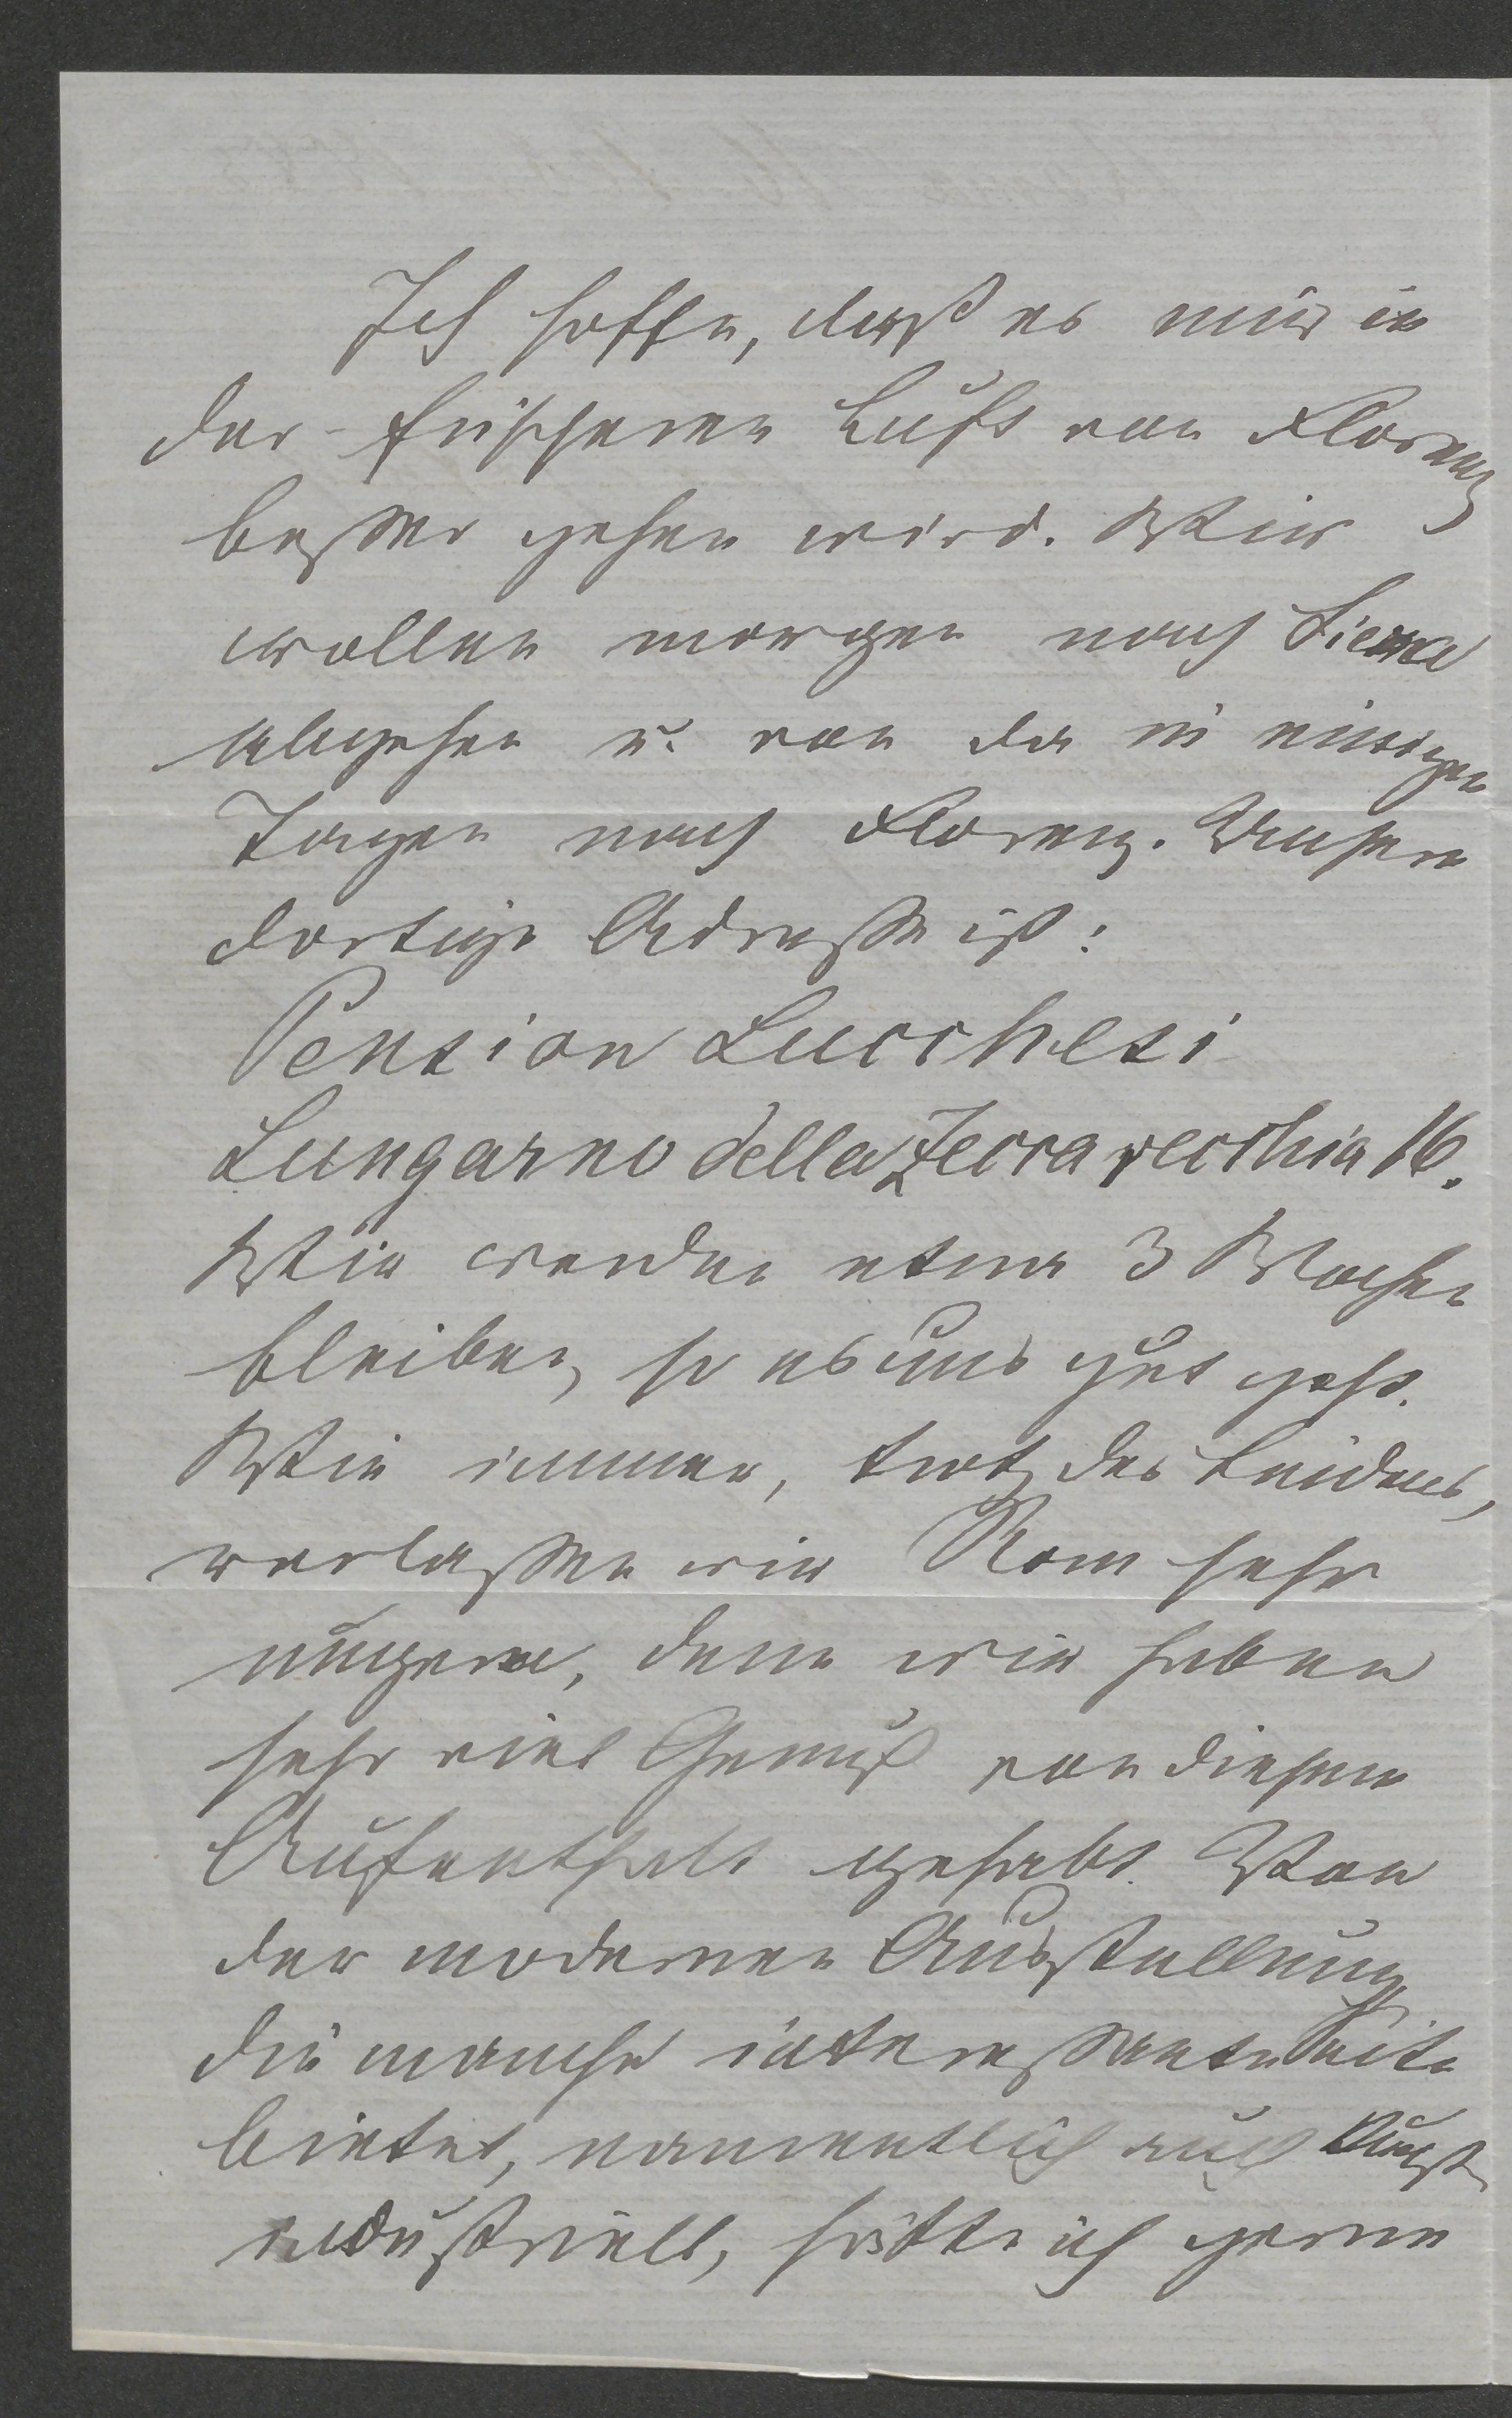 Ich hoffe, daß es mir in
der frischeren Luft von Florenz
besser gehen wird. Wir
wollen morgen nach Siena
abgehen u. von da in einigen
Tagen nach Florenz. Unsere
dortige Adresse ist:
Pension Lucchesi
Lungarno della Zecca vecchia 16.
Wir werden etwa 3 Wochen
bleiben, so es uns gut geht.
Wie immer, trotz des Leidens,
verlassen wir Rom sehr
ungern, denn wir haben
sehr viel Genuß von diesem
Aufenthalt gehabt. Von
der modernen Ausstellung
die manche interessante Seite
bietet, namentlich auch Kunst
industriell, hätte ich gerne